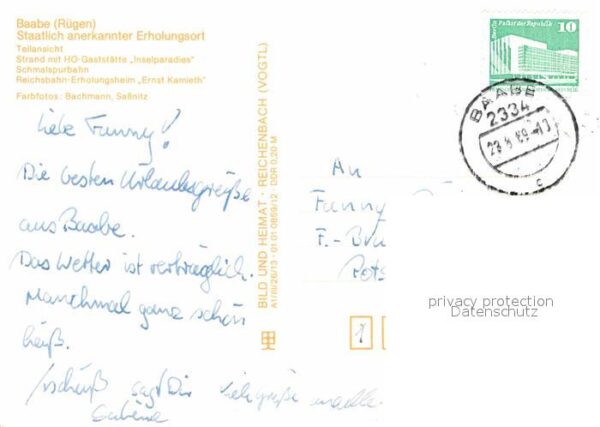 Baabe (Rügen)
Staatlich anerkannter Erholungsort
Teilansicht
Strand mit HO-Gaststätte „Inselparadies"
Schmalspurbahn
Reichsbahn-Erholungsheim „Ernst Kamieth"
Farbfotos: Bachmann, Saßnitz
Liebe Fanny!
Die besten Urlaubsgrüße
aus Baabe.
Das Wetter ist verträglich.
Manchmal ganz schön
heiß.
sagt Dir
Sabine
BILD UND HEIMAT · REICHENBACH (VOGTL)
A1/III/26/13 · 01 01 0869/12 · DDR 0,20 M
Berlin Palast der Republik
10
BAABE
2334
c
An
Fanny
F.-
Pots
1
privacy protection
Datenschutz